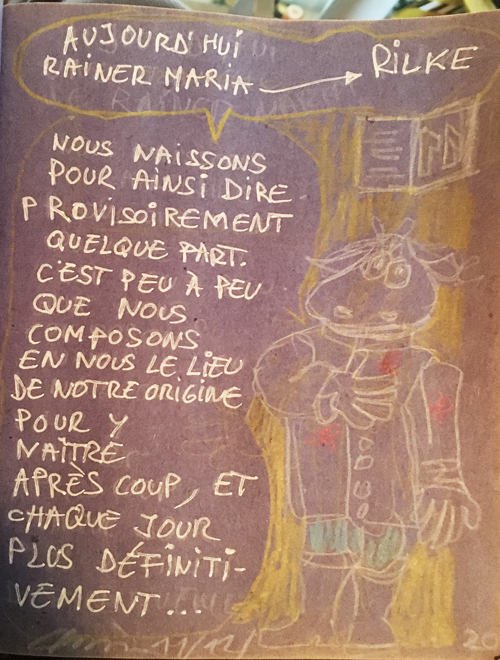 AUJOURD'HUI
RAINER MARIA
RILKE
NOUS NAISSONS
POUR AINSI DIRE
PROVISOIREMENT
QUELQUE PART.
C'EST PEU À PEU
QUE NOUS
COMPOSONS
EN NOUS LE LIEU
DE NOTRE ORIGINE
POUR Y
NAÎTRE
APRÈS COUP, ET
CHAQUE JOUR
PLUS DÉFINITI-
VEMENT...